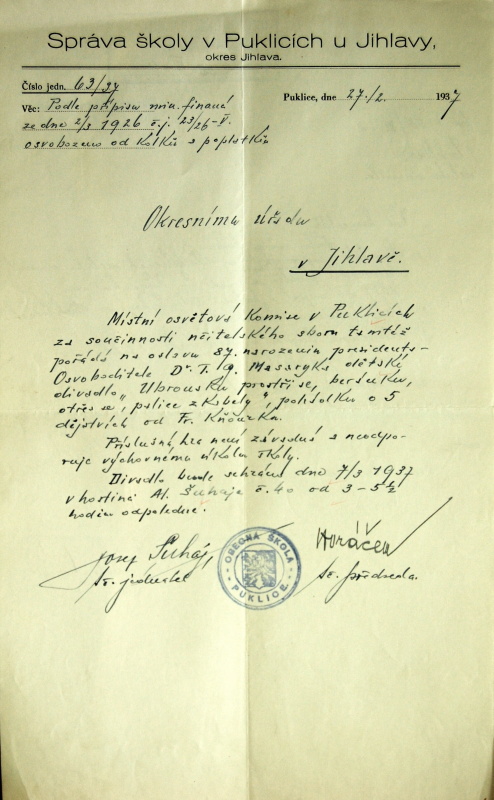 Správa školy v Puklicích u Jihlavy,
okres Jihlava.
Číslo jedn. 63/37
Puklice, dne 27./2. 1937
Věc: Podle přípisu min. financí
ze dne 2/3 1926 č.j. 23/26-V.
osvobozeno od kolků a poplatků
Okresnímu úřadu
v Jihlavě.
Místní osvětová komise v Puklicích
za součinnosti učitelského sboru tamtéž
pořádá na oslavu 87. narozenin presidenta-
Osvoboditele Dr. T. G. Masaryka dětské
divadlo "Ubrousku prostři se, beránku,
otřes se, palice z kabely", pohádku o 5
dějstvích od Fr.
Příslušná hra není závadná a neodpo-
ruje výchovnému úkolu školy.
Divadlo bude sehráno dne 7/3 1937
v hostinci Al. Šuhaje č. 40 od 3-5½
hodin odpoledne.
Josef Šuhaj,
t. č. jednatel
Horáček
t. č. předseda.
OBECNÁ ŠKOLA
PUKLICE